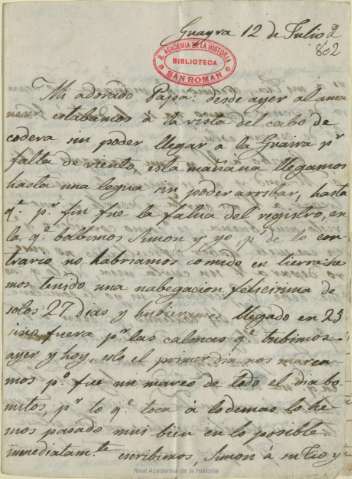 Guayra 12 de Julio de
802
R. ACADEMIA DE LA HISTORIA
BIBLIOTECA
SAN ROMAN
Mi adorado Papa: desde ayer al amane
cer estabamos á la vista del cabo de
codera sin poder llegar á la Guaira pr
falta de viento, esta mañana llegamos
hasta una legua sin poder arribar, hasta
qe. pr. fin fue la falua del registro, en
la qe. bolbimos Simon y yo pr. de lo con
trario no habriamos comido en tierra he
mos tenido una nabegacion felicisima de
solos 27 dias y hubieramos llegado en 23
sino fuera pr. las calmas qe. tubimos
ayer y hoy, solo el primer dia nos marea
mos po. fue un mareo de todo el dia bo
mitos, pr. lo qe. toca á lo demas lo he
mos pasado mui bien en lo posible
inmediatamte. escribimos, Simon á su Tio y
Real Academia de la Historia